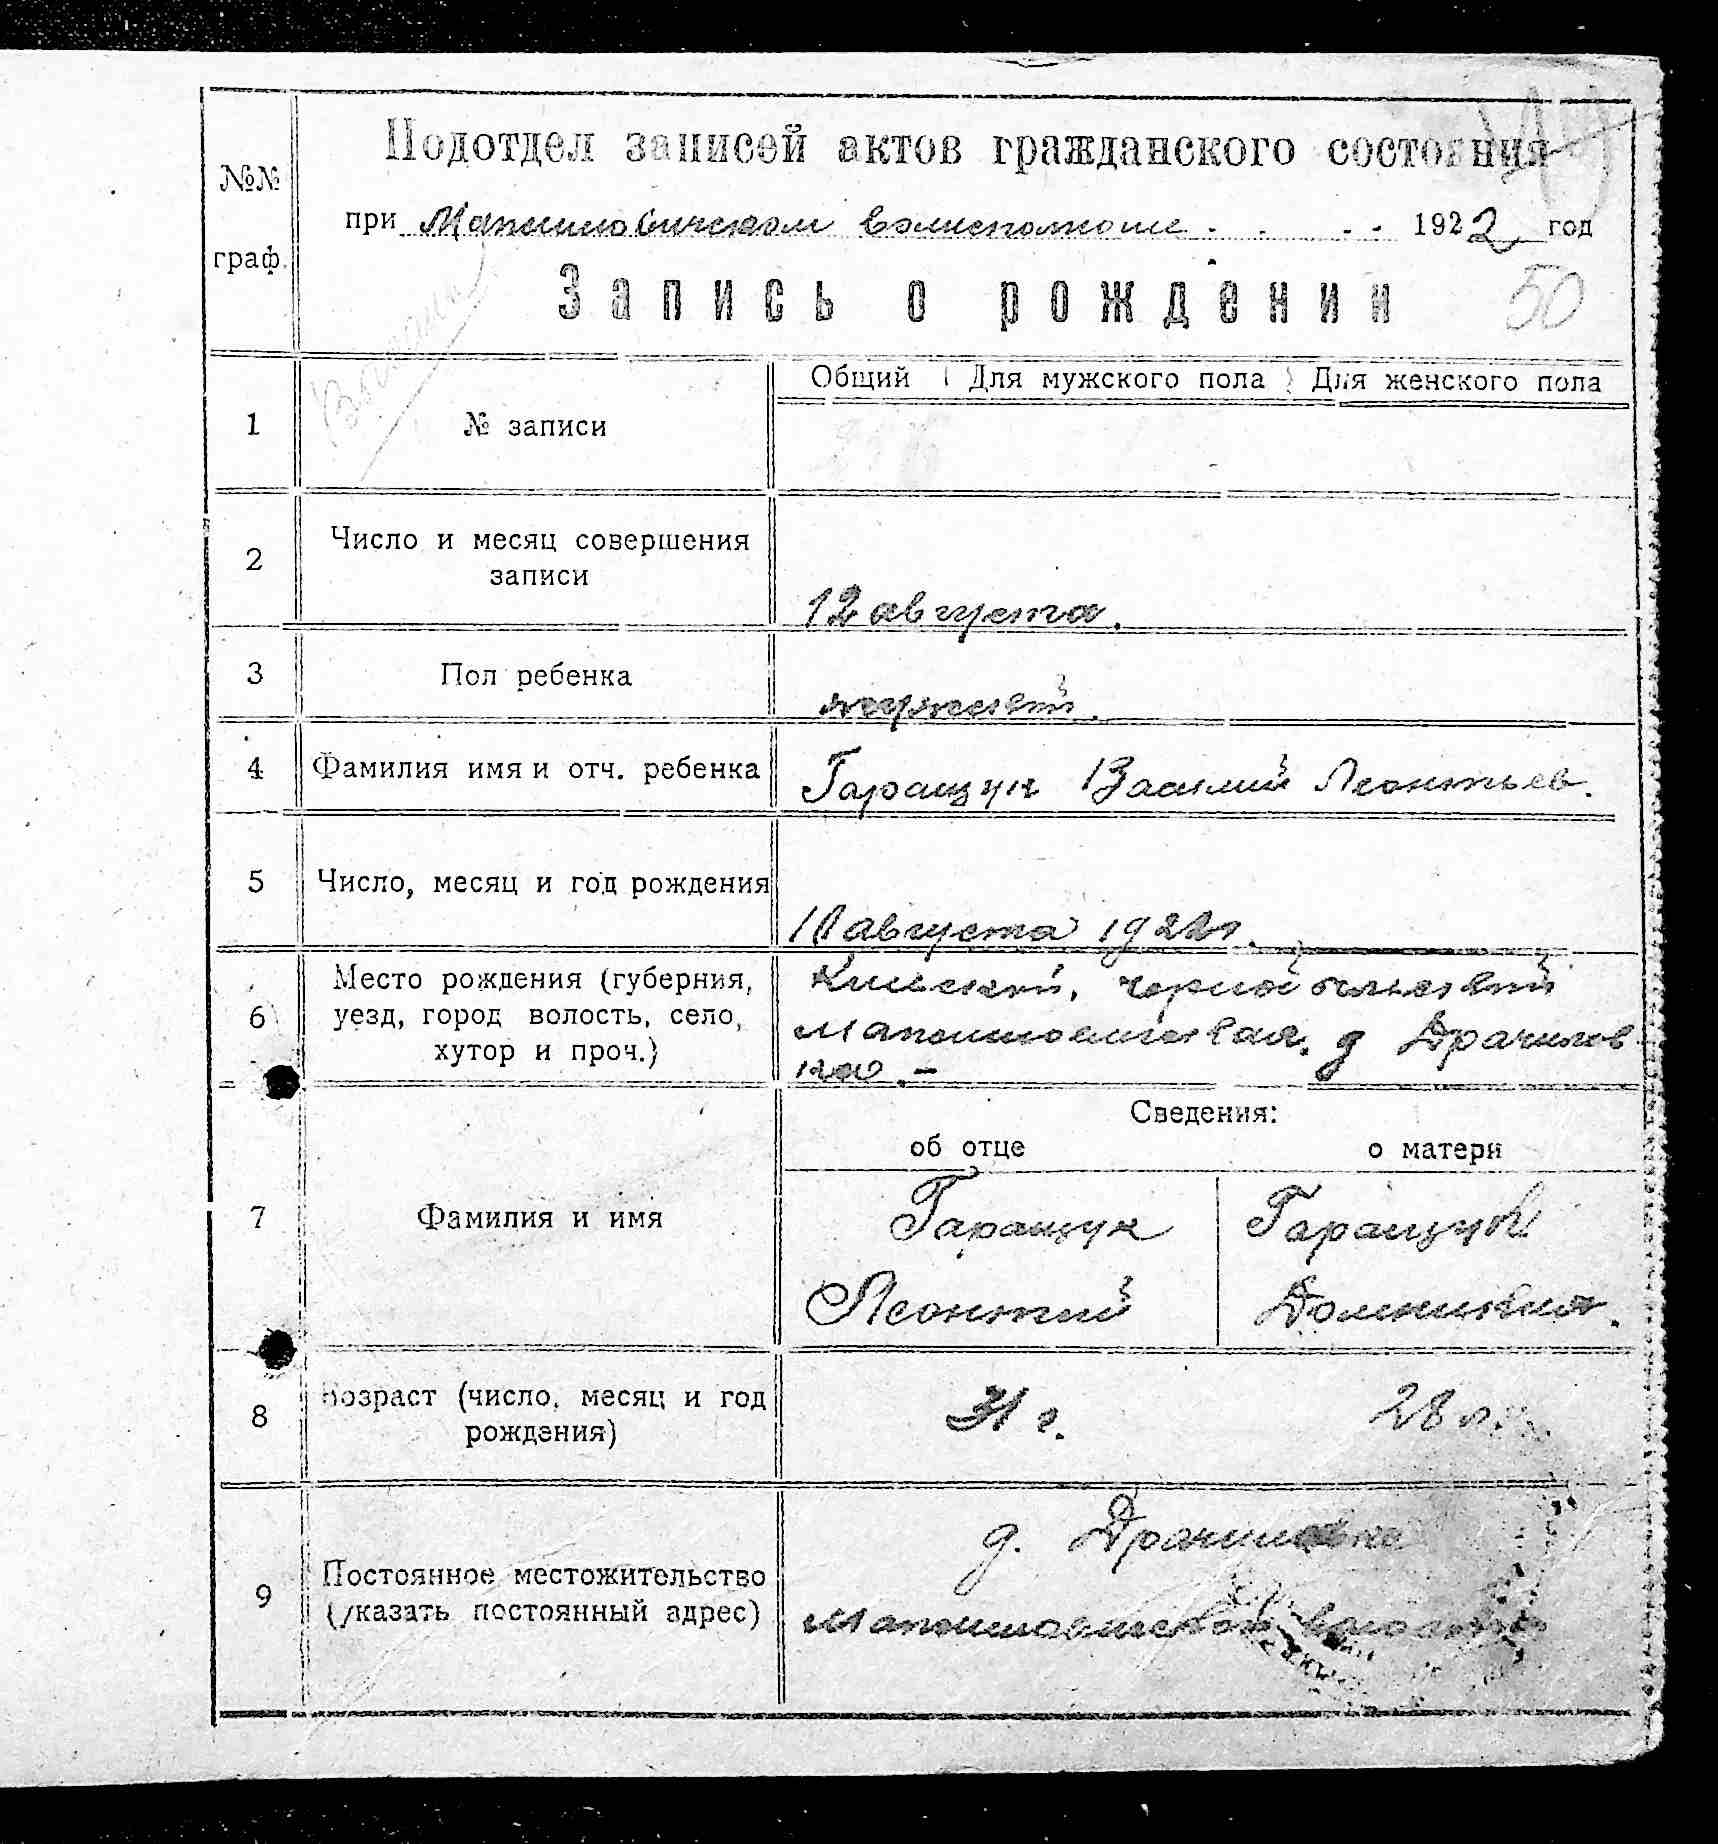 №№ граф.
Подотдел записей актов гражданского состояния
при волисполкоме 1922 год
Запись о рождении 50
1 № записи
Общий Для мужского пола Для женского пола
2 Число и месяц совершения
записи
12 августа.
3 Пол ребенка
мужской.
4 Фамилия имя и отч. ребенка Гаращук Василий Леонтьев.
5 Число, месяц и год рождения
августа 1922 г.
6 Место рождения (губерния,
уезд, город волость, село,
хутор и проч.)
Киевской, чернобыльский
д Драчилов
ка.-
Сведения:
об отце о матери
7 Фамилия и имя
Гаращук Гаращук
Леонтий Домникия.
8 Возраст (число, месяц и год
рождения)
31 г. 28 л.
9 Постоянное местожительство
(указать постоянный адрес)
д.
волости